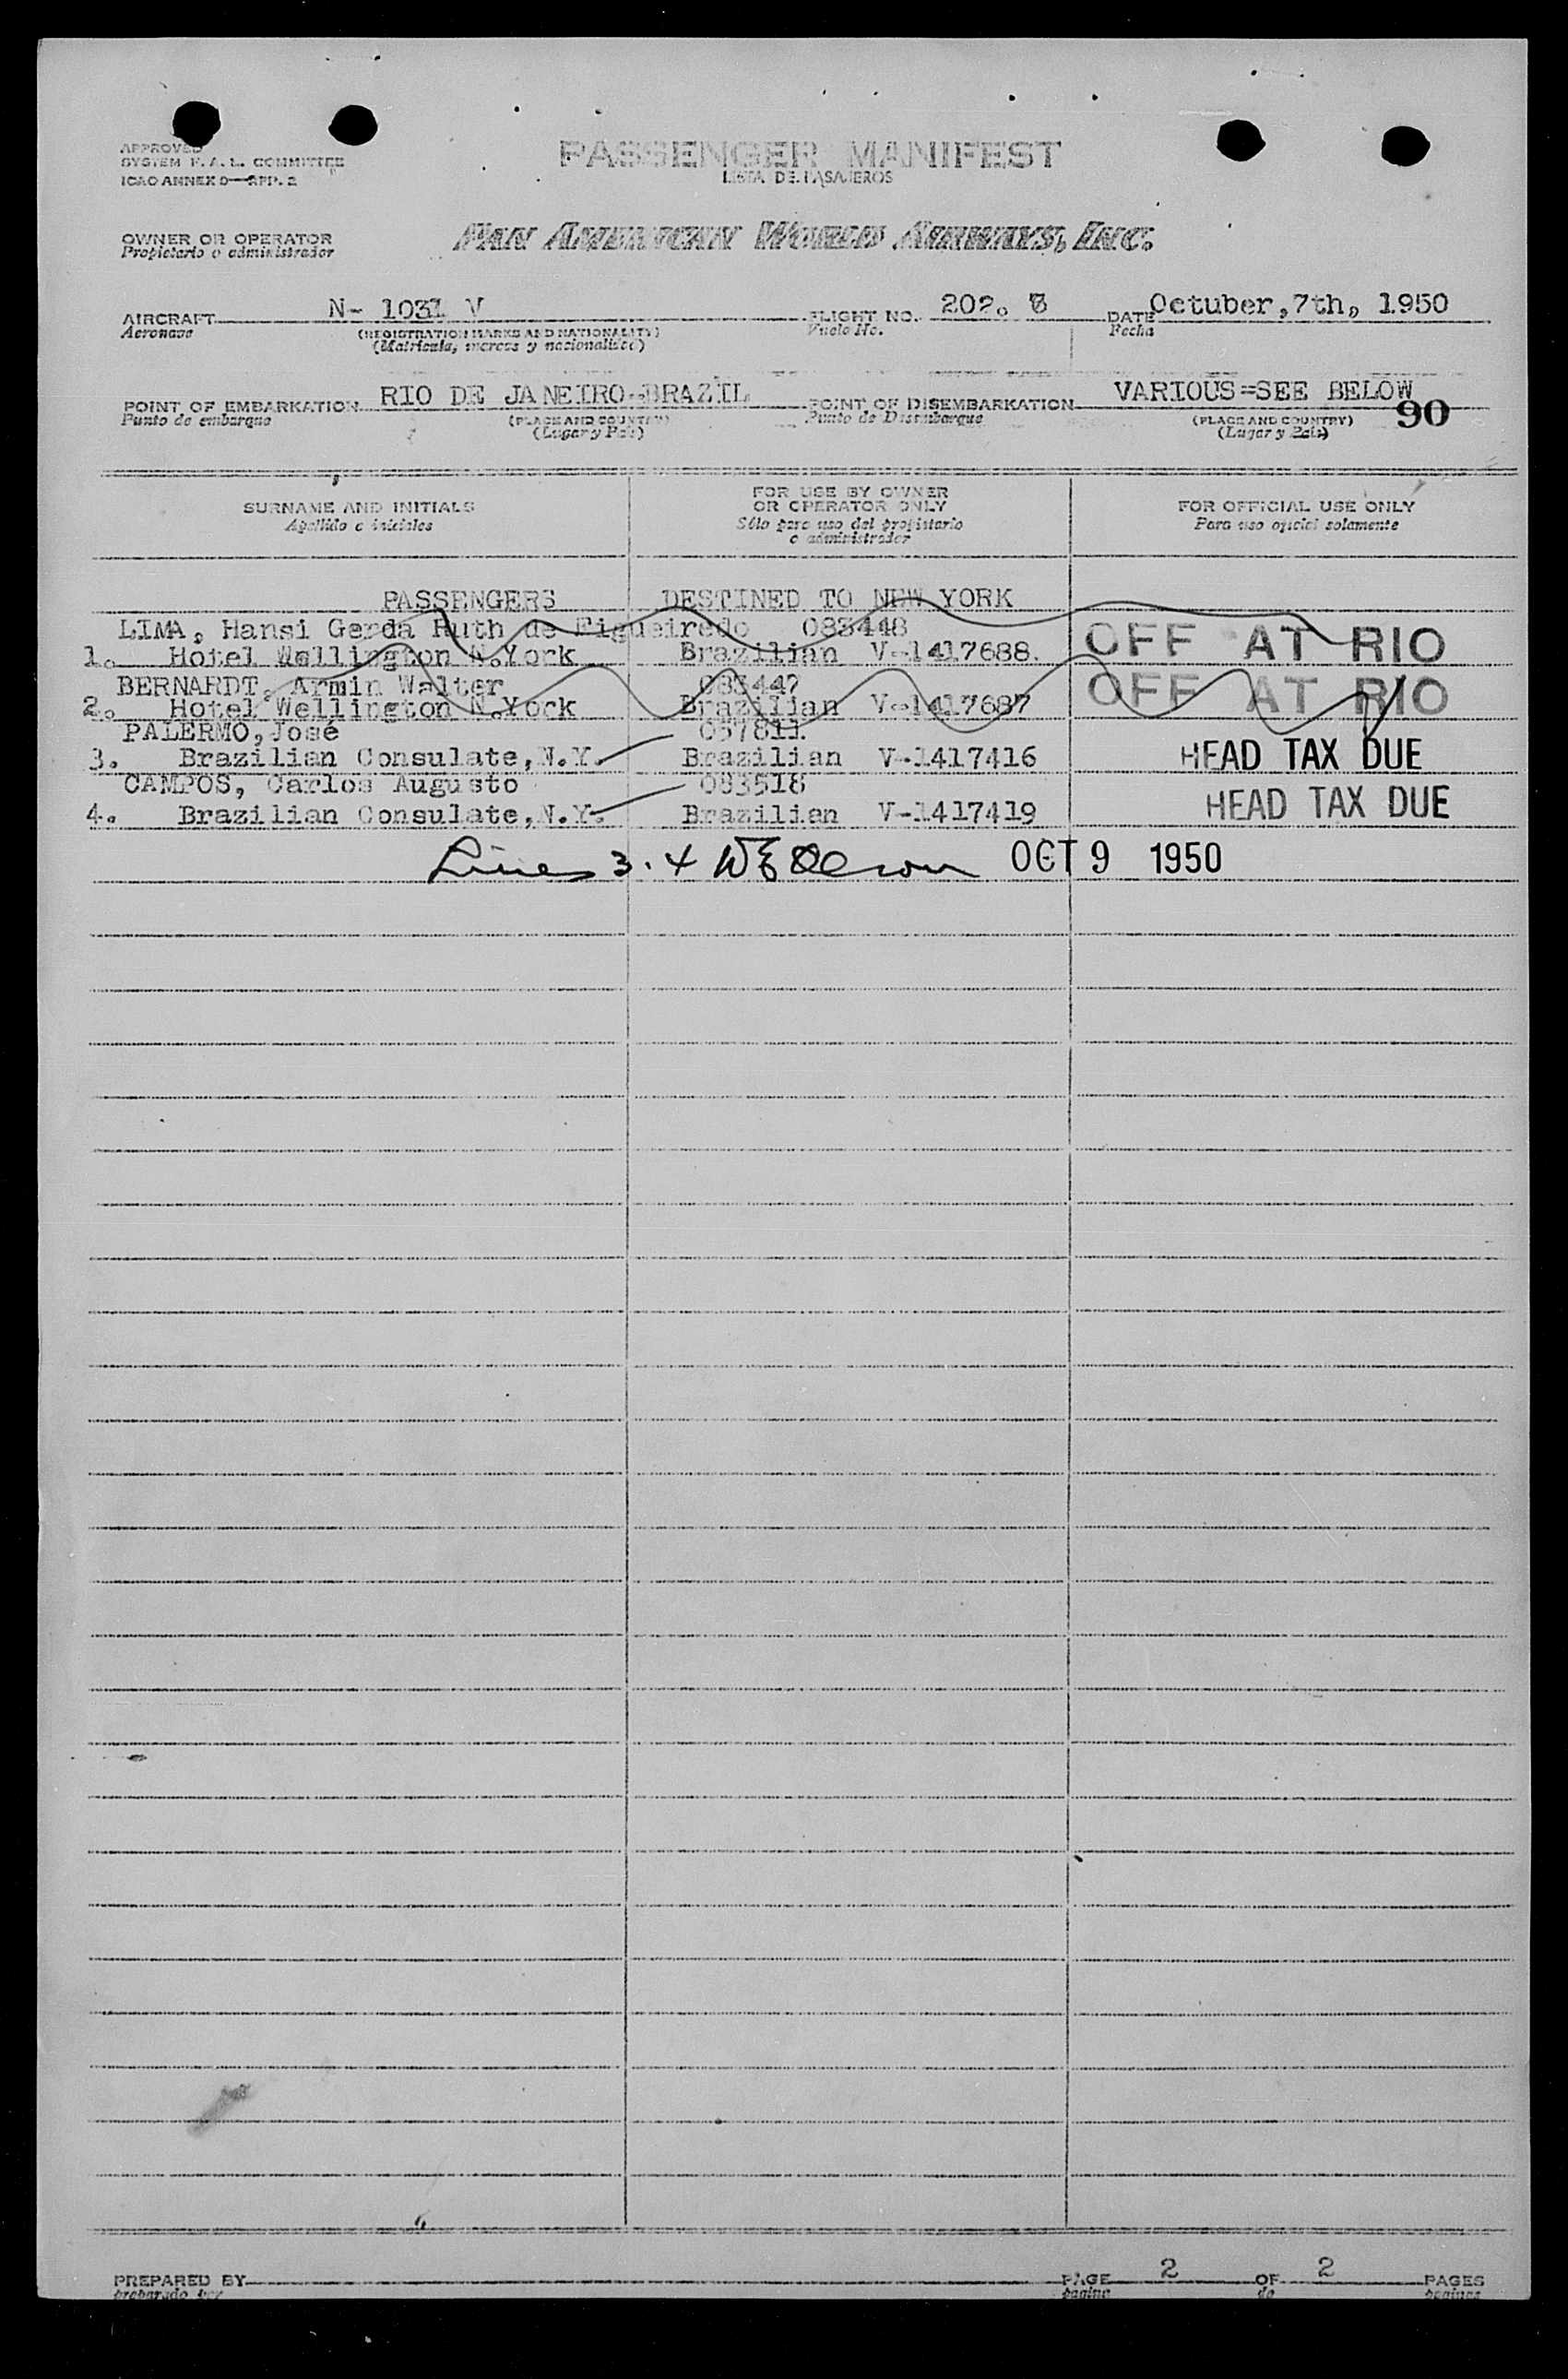 APPROVED
SYSTEM F.A.L. COMMITTEE
ICAO ANNEX 9—APP. 2
PASSENGER MANIFEST
LISTA DE PASAJEROS
OWNER OR OPERATOR
Propietario o administrador
PAN AMERICAN WORLD AIRWAYS, INC.
AIRCRAFT N- 1031 V FLIGHT NO. 202. DATE Octuber,7th, 1950
Aeronave (REGISTRATION MARKS AND NATIONALITY) Vuelo No. Fecha
(Matricula, marcas y nacionalidad)
POINT OF EMBARKATION RIO DE JANEIRO-BRAZIL POINT OF DISEMBARKATION VARIOUS=SEE BELOW
Punto de embarque (PLACE AND COUNTRY) Punto de Desembarque (PLACE AND COUNTRY) 90
(Lugar y Pais) (Lugar y Pais)
SURNAME AND INITIALS FOR USE BY OWNER OR OPERATOR ONLY FOR OFFICIAL USE ONLY
Apellido e iniciales Sólo para uso del propietario o administrador Para uso oficial solamente
PASSENGERS DESTINED TO NEW YORK
LIMA, Hansi Gerda Ruth de Figueiredo 083448
1. Hotel Wellington N.York Brazilian V-1417688. OFF AT RIO
BERNARDT, Armin Walter 083447
2. Hotel Wellington N.York Brazilian V-1417687 OFF AT RIO
PALERMO, José 057811
3. Brazilian Consulate, N.Y. Brazilian V-1417416 HEAD TAX DUE
CAMPOS, Carlos Augusto 083518
4. Brazilian Consulate, N.Y. Brazilian V-1417419 HEAD TAX DUE
Lines 3.4 OCT 9 1950
PREPARED BY PAGE 2 OF 2 PAGES
preparado por pagina de paginas